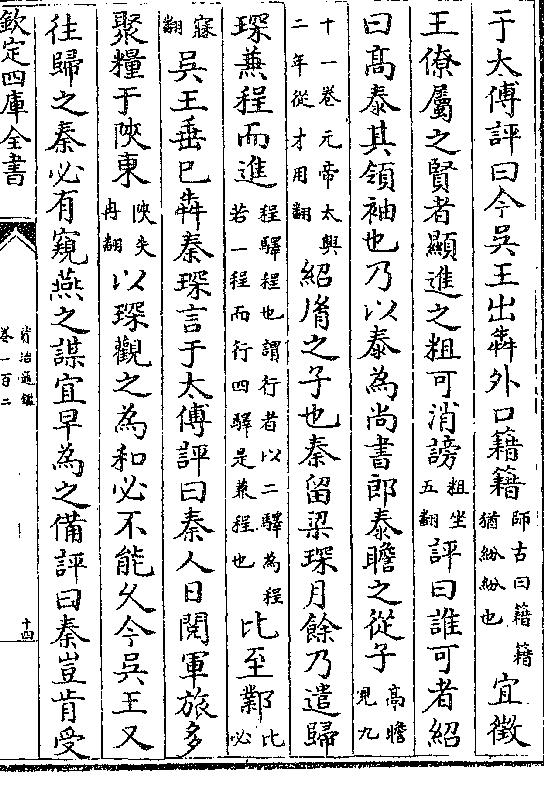 于太傅評曰今吳王出犇外口籍籍師古曰籍籍猶紛紛也宜徵
王僚屬之賢者顯進之粗可消謗粗坐五翻評曰誰可者紹
曰髙泰其領袖也乃以泰為尚書郎泰瞻之從子高瞻見九
十一卷元帝太興二年從才用翻紹胤之子也秦留梁琛月餘乃遣歸
琛兼程而進程驛程也謂行者以二驛為程若一程而行四驛是兼程也比至鄴比必
寐翻吳王垂已犇秦琛言于太傅評曰秦人日閱軍旅多
聚糧于陜東陜失冉翻以琛觀之為和必不能久今吳王又
往歸之秦必有窺燕之謀宜早為之備評曰秦豈肯受
欽定四庫全書
資治通鑑
卷一百二
十四